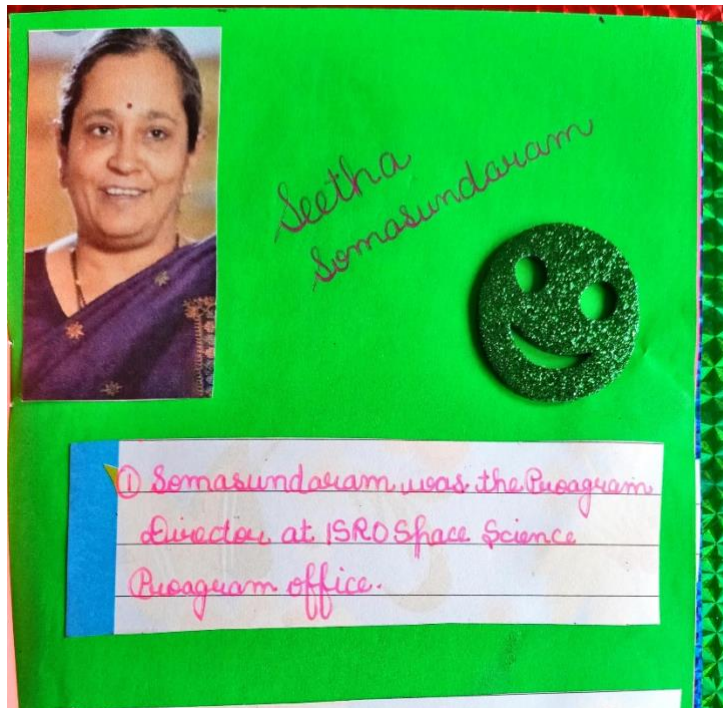 Seetha
Somasundaram
① Somasundaram was the Proagram
Director at ISRO Space Science
Proagram office.